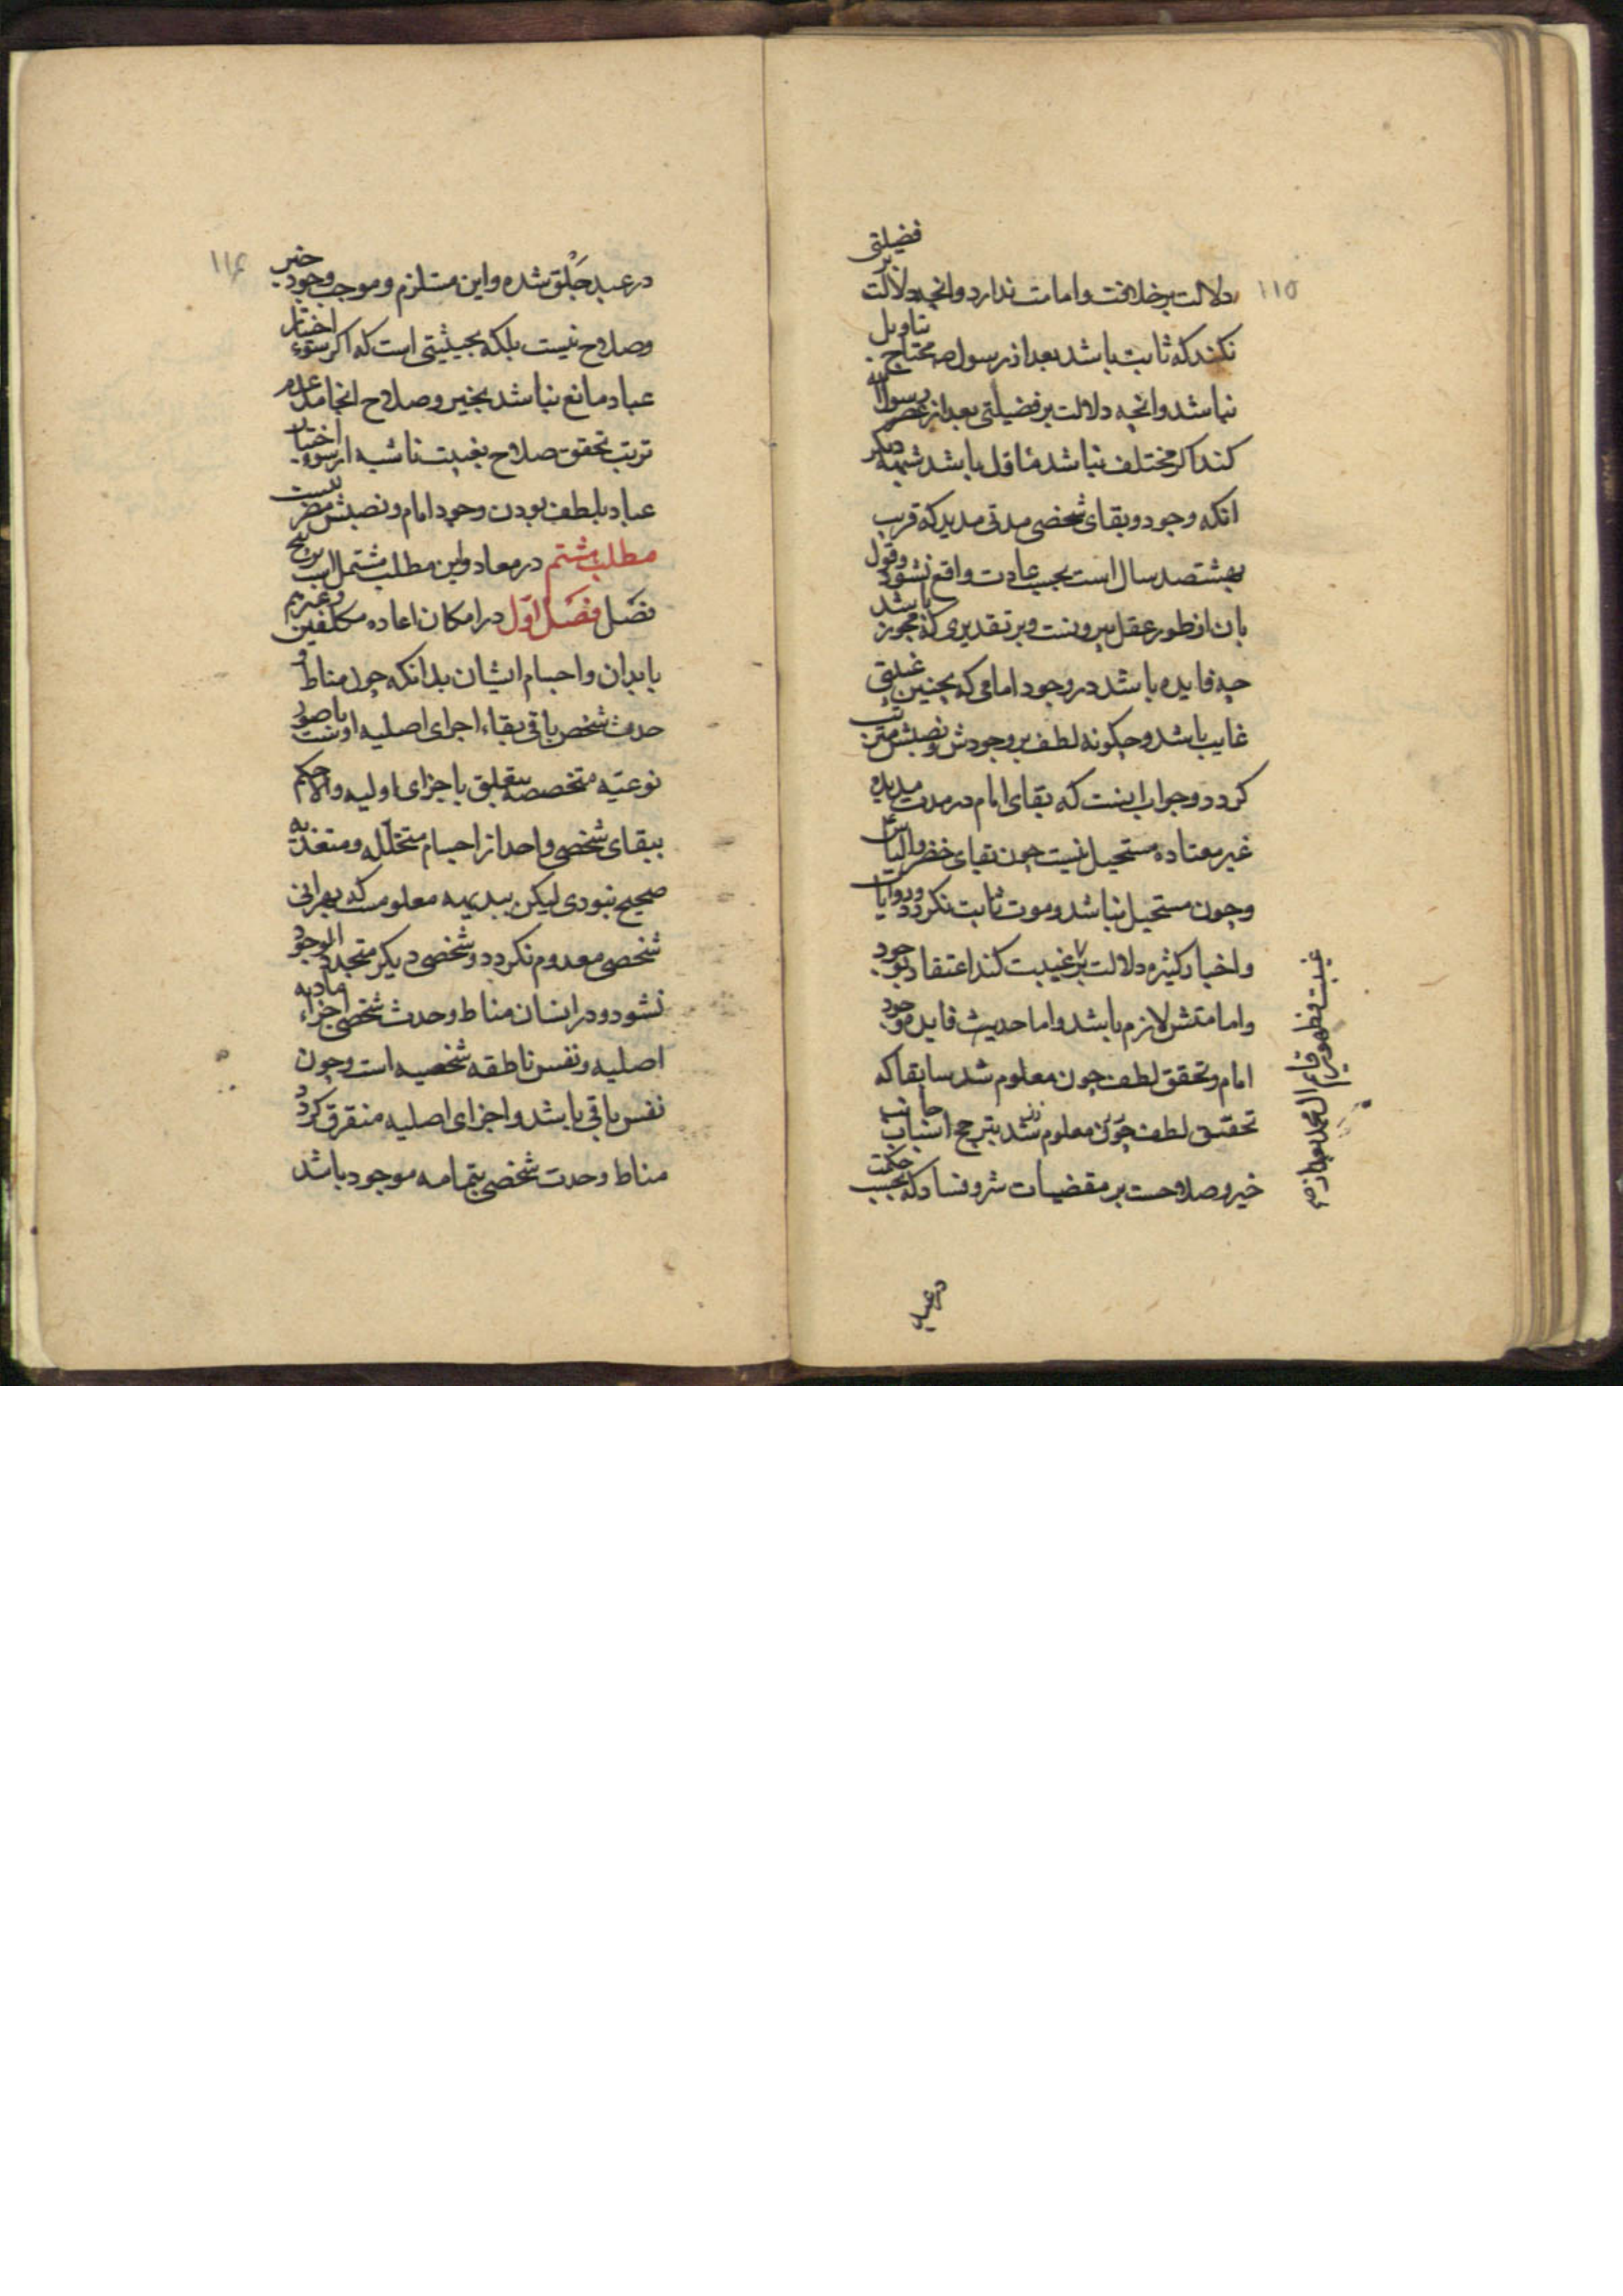 ۱۱۵
دلالت بر خلافت و امامت ندارد و انچه دلالت بر فضیلتی
نکند که ثابت باشد بعد از رسول ص محتاج تاویل
نباشد و انچه دلالت بر فضیلتی بعد از عصر رسول الله
کند اکر مختلف نباشد شبهه دیکر
انکه وجود و بقای شخصی مدتی مدید که قریب
بهشتصد سال است بحسب عادت واقع نشود و قول
بان از طور عقل بیرونست و بر تقدیری که مجوز باشد
چه فایده باشد در وجود امامی که بچنین غیبتی
غایب باشد و چکونه لطف بر وجودش و نصبش مترتب
کردد و جواب اینست که بقای امام در مدت مدیده
غیر معتاده مستحیل نیست چون بقای خضر و الیاس
و چون مستحیل نباشد و موت ثابت نکردد و روایات
و اخبار کثیره دلالت بر غیبت کند اعتقاد بوجود
و امامتش لازم باشد و اما حدیث فایده وجود
امام و تحقق لطف چون معلوم شد سابقا که
تحقق لطف چون معلوم شد بترجیح اسباب جانب
خیر و صلاحست بر مقضیات شر و فساد که بحسب حکمت
غیبت و ظهور قایم ال محمد
در عباد
۱۱۶
در عبد خلق شده و این مستلزم و موجب وجود خیر
و صلاح نیست بلکه بحیثیتی است که اکر سوء اختیار
عباد مانع نباشد بخیر و صلاح انجامد عدم
ترتب تحقق صلاح بغیبت ناشیه از سوء اختیار
عباد بلطف بودن وجود امام و نصبش مضر نیست
مطلب هشتم در معاد و این مطلب مشتمل است بر پنج
فصل فصل اول در امکان اعاده مکلفین و غیرهم
بابدان و اجسام ایشان بدانکه چون مناط و
حدت شخص باقی بقاء اجزای اصلیه اوست با صور
نوعیه متخصصه متعلق باجزای اولیه و الا حکم
ببقای شخصی واحد از اجسام متخلله و متغذیه
صحیح نبودی لیکن ببدیهه معلومست که بهرانی
شخصی معدوم نکردد و شخصی دیکر متجدد الوجود
نشود و در انسان مناط وحدت شخصی اجزاء مادیه
اصلیه و نفس ناطقه شخصیه است و چون
نفس باقی باشد و اجزای اصلیه متفرق کردد
مناط وحدت شخصی بتمامه موجود باشد